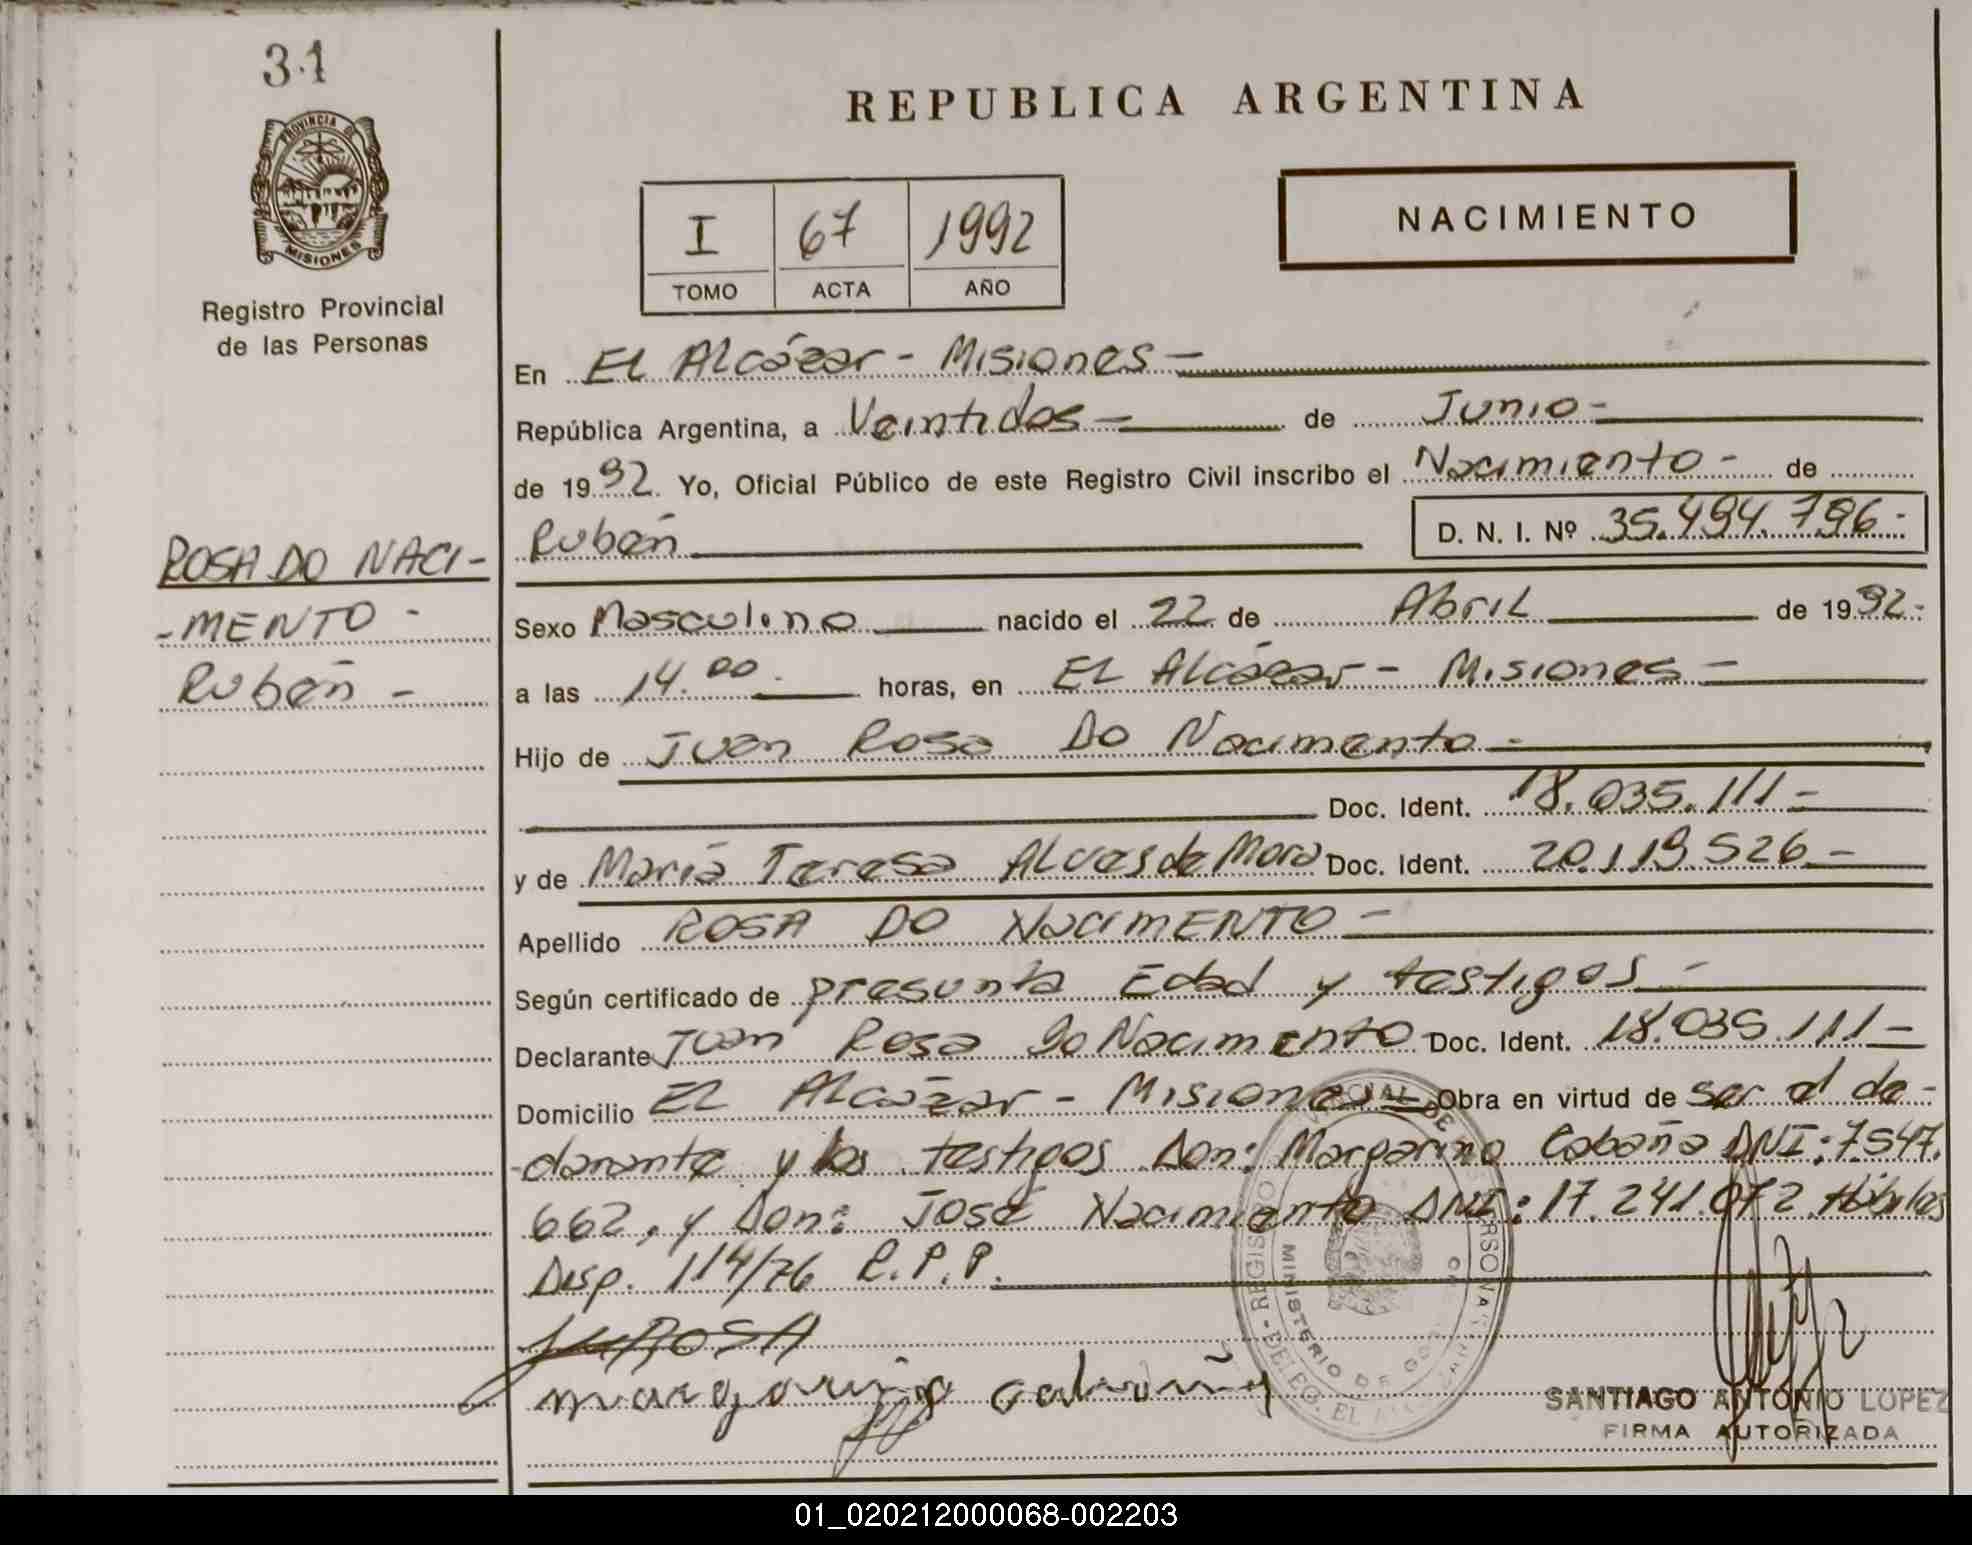 31
PROVINCIA DE
MISIONES
Registro Provincial
de las Personas
REPUBLICA ARGENTINA
I 67 1992
TOMO ACTA AÑO
NACIMIENTO
En El Alcázar - Misiones -
República Argentina, a Veintidos - de Junio -
de 1992. Yo, Oficial Público de este Registro Civil inscribo el Nacimiento - de
Rubén D. N. I. Nº 35.494.796.-
ROSA DO NACI-
-MENTO -
Rubén -
Sexo Masculino nacido el 22 de Abril de 1992.-
a las 14.00 horas, en El Alcázar - Misiones -
Hijo de Juan Rosa Do Nacimento -
Doc. Ident. 18.035.111 -
y de María Teresa Alves de Mora Doc. Ident. 20.119.526 -
Apellido ROSA DO NACIMENTO -
Según certificado de presunta Edad y testigos -
Declarante Juan Rosa Do Nacimento Doc. Ident. 18.035.111 -
Domicilio El Alcázar - Misiones - Obra en virtud de ser el de-
clarante y los testigos Don: Margarino Cabaña DNI: 7.547.
662, y Don: José Nacimiento DNI: 17.241.072 Hábiles
Disp. 114/76 R.P.P.
ROSA
SANTIAGO ANTONIO LOPEZ
FIRMA AUTORIZADA
01_020212000068-002203